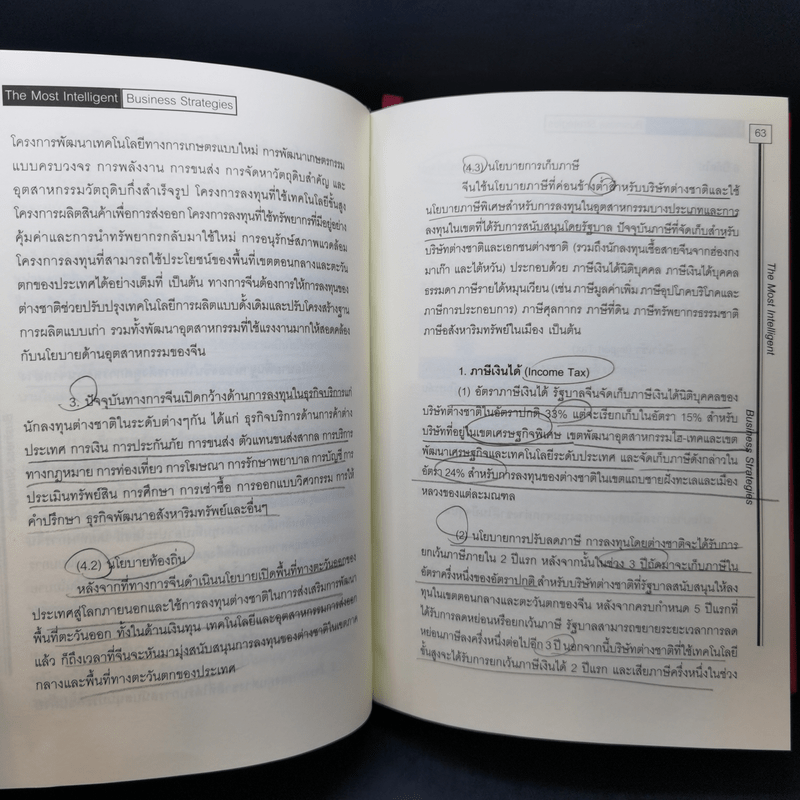 The Most Intelligent Business Strategies
โครงการพัฒนาเทคโนโลยีทางการเกษตรแบบใหม่ การพัฒนาเกษตรกรรม
แบบครบวงจร การพลังงาน การขนส่ง การจัดหาวัตถุดิบสำคัญ และ
อุตสาหกรรมวัตถุดิบกึ่งสำเร็จรูป โครงการลงทุนที่ใช้เทคโนโลยีขั้นสูง
โครงการผลิตสินค้าเพื่อการส่งออก โครงการลงทุนที่ใช้ทรัพยากรที่มีอยู่อย่าง
คุ้มค่าและการนำทรัพยากรกลับมาใช้ใหม่ การอนุรักษ์สภาพแวดล้อม
โครงการลงทุนที่สามารถใช้ประโยชน์ของพื้นที่เขตตอนกลางและตะวัน
ตกของประเทศได้อย่างเต็มที่ เป็นต้น ทางการจีนต้องการให้การลงทุนของ
ต่างชาติช่วยปรับปรุงเทคโนโลยีการผลิตแบบดั้งเดิมและปรับโครงสร้างฐาน
การผลิตแบบเก่า รวมทั้งพัฒนาอุตสาหกรรมที่ใช้แรงงานมากให้สอดคล้อง
กับนโยบายด้านอุตสาหกรรมของจีน
3. ปัจจุบันทางการจีนเปิดกว้างด้านการลงทุนในธุรกิจบริการแก่
นักลงทุนต่างชาติในระดับต่างๆกัน ได้แก่ ธุรกิจบริการด้านการค้าต่าง
ประเทศ การเงิน การประกันภัย การขนส่ง ตัวแทนขนส่งสากล การบริการ
ทางกฎหมาย การท่องเที่ยว การโฆษณา การรักษาพยาบาล การบัญชี การ
ประเมินทรัพย์สิน การศึกษา การเช่าซื้อ การออกแบบวิศวกรรม การให้
คำปรึกษา ธุรกิจพัฒนาอสังหาริมทรัพย์และอื่นๆ
(4.2) นโยบายท้องถิ่น
หลังจากที่ทางการจีนดำเนินนโยบายเปิดพื้นที่ทางตะวันออกของ
ประเทศสู่โลกภายนอกและใช้การลงทุนต่างชาติในการส่งเสริมการพัฒนา
พื้นที่ตะวันออก ทั้งในด้านเงินทุน เทคโนโลยีและอุตสาหกรรมการส่งออก
แล้ว ก็ถึงเวลาที่จีนจะหันมามุ่งสนับสนุนการลงทุนของต่างชาติในเขตภาค
กลางและพื้นที่ทางตะวันตกของประเทศ
63
(4.3) นโยบายการเก็บภาษี
จีนใช้นโยบายภาษีที่ค่อนข้างต่ำสำหรับบริษัทต่างชาติและใช้
นโยบายภาษีพิเศษสำหรับการลงทุนในอุตสาหกรรมบางประเภทและการ
ลงทุนในเขตที่ได้รับการสนับสนุนโดยรัฐบาล ปัจจุบันภาษีที่จัดเก็บสำหรับ
บริษัทต่างชาติและเอกชนต่างชาติ (รวมถึงนักลงทุนเชื้อสายจีนจากฮ่องกง
มาเก๊า และไต้หวัน) ประกอบด้วย ภาษีเงินได้นิติบุคคล ภาษีเงินได้บุคคล
ธรรมดา ภาษีรายได้หมุนเวียน (เช่น ภาษีมูลค่าเพิ่ม ภาษีอุปโภคบริโภคและ
ภาษีการประกอบการ) ภาษีศุลกากร ภาษีที่ดิน ภาษีทรัพยากรธรรมชาติ
ภาษีอสังหาริมทรัพย์ในเมือง เป็นต้น
1. ภาษีเงินได้ (Income Tax)
(1) อัตราภาษีเงินได้ รัฐบาลจีนจัดเก็บภาษีเงินได้นิติบุคคลของ
บริษัทต่างชาติในอัตราปกติ 33% แต่จะเรียกเก็บในอัตรา 15% สำหรับ
บริษัทที่อยู่ในเขตเศรษฐกิจพิเศษ เขตพัฒนาอุตสาหกรรมไฮ-เทคและเขต
พัฒนาเศรษฐกิจและเทคโนโลยีระดับประเทศ และจัดเก็บภาษีดังกล่าวใน
อัตรา 24% สำหรับการลงทุนของต่างชาติในเขตแถบชายฝั่งทะเลและเมือง
หลวงของแต่ละมณฑล
(2) นโยบายการปรับลดภาษี การลงทุนโดยต่างชาติจะได้รับการ
ยกเว้นภาษีภายใน 2 ปีแรก หลังจากนั้นในช่วง 3 ปีถัดมาจะเก็บภาษีใน
อัตราครึ่งหนึ่งของอัตราปกติ สำหรับบริษัทต่างชาติที่รัฐบาลสนับสนุนให้ลง
ทุนในเขตตอนกลางและตะวันตกของจีน หลังจากครบกำหนด 5 ปีแรกที่
ได้รับการลดหย่อนหรือยกเว้นภาษี รัฐบาลสามารถขยายระยะเวลาการลด
หย่อนภาษีลงครึ่งหนึ่งต่อไปอีก 3 ปี นอกจากนี้บริษัทต่างชาติที่ใช้เทคโนโลยี
ขั้นสูงจะได้รับการยกเว้นภาษีเงินได้ 2 ปีแรก และเสียภาษีครึ่งหนึ่งในช่วง
The Most Intelligent
Business Strategies